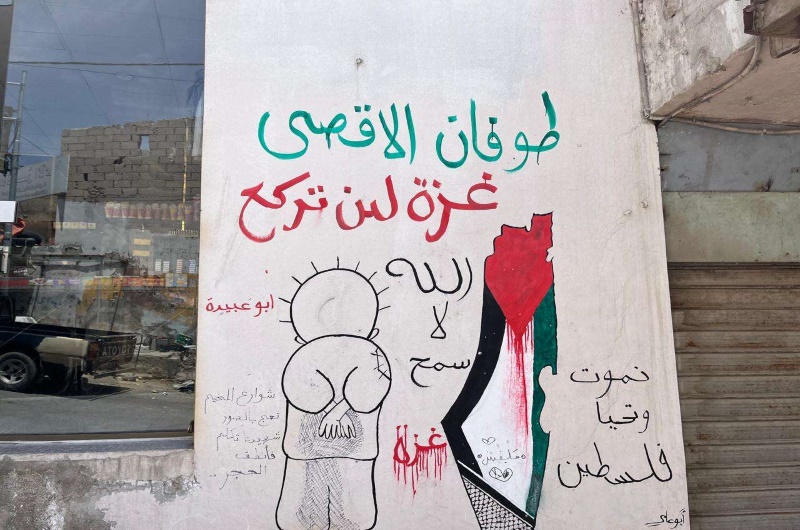 طوفان الاقصى
غزة لن تركع
الله
لا
سمح
ابو عبيدة
غزة
نموت
وتحيا
فلسطين
شوارع المخيم
تعج بالصور
شهيدنا تكلم
فأنصف
الحجر
أبو علي